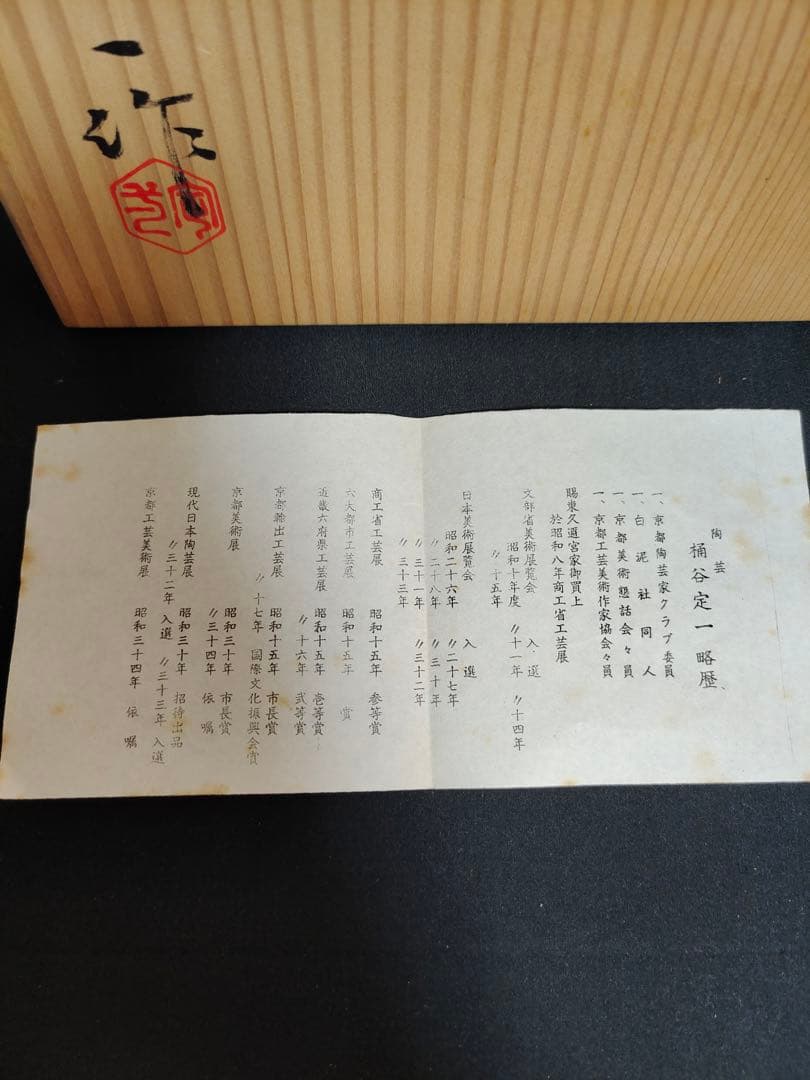 一
作
陶芸
桶谷定一略歴
一、京都陶芸家クラブ委員
一、白泥社同人
一、京都美術懇話会々員
一、京都工芸美術作家協会々員
賜東久邇宮家御買上
於昭和八年商工省工芸展
文部省美術展覧会 入選
昭和十年度 〃十一年 〃十四年
〃十五年
日本美術展覧会 入選
昭和二十六年 〃二十七年
〃二十八年 〃三十年
〃三十一年 〃三十二年
〃三十三年
商工省工芸展 昭和十五年 参等賞
六大都市工芸展 昭和十五年 賞
近畿六府県工芸展 昭和十五年 壱等賞
〃十六年 弐等賞
京都輸出工芸展 昭和十五年 市長賞
〃十七年 国際文化振興会賞
京都美術展 昭和三十年 市長賞
〃三十四年 依嘱
現代日本陶芸展 昭和三十年 招待出品
〃三十二年 入選 〃三十三年 入選
京都工芸美術展 昭和三十四年 依嘱